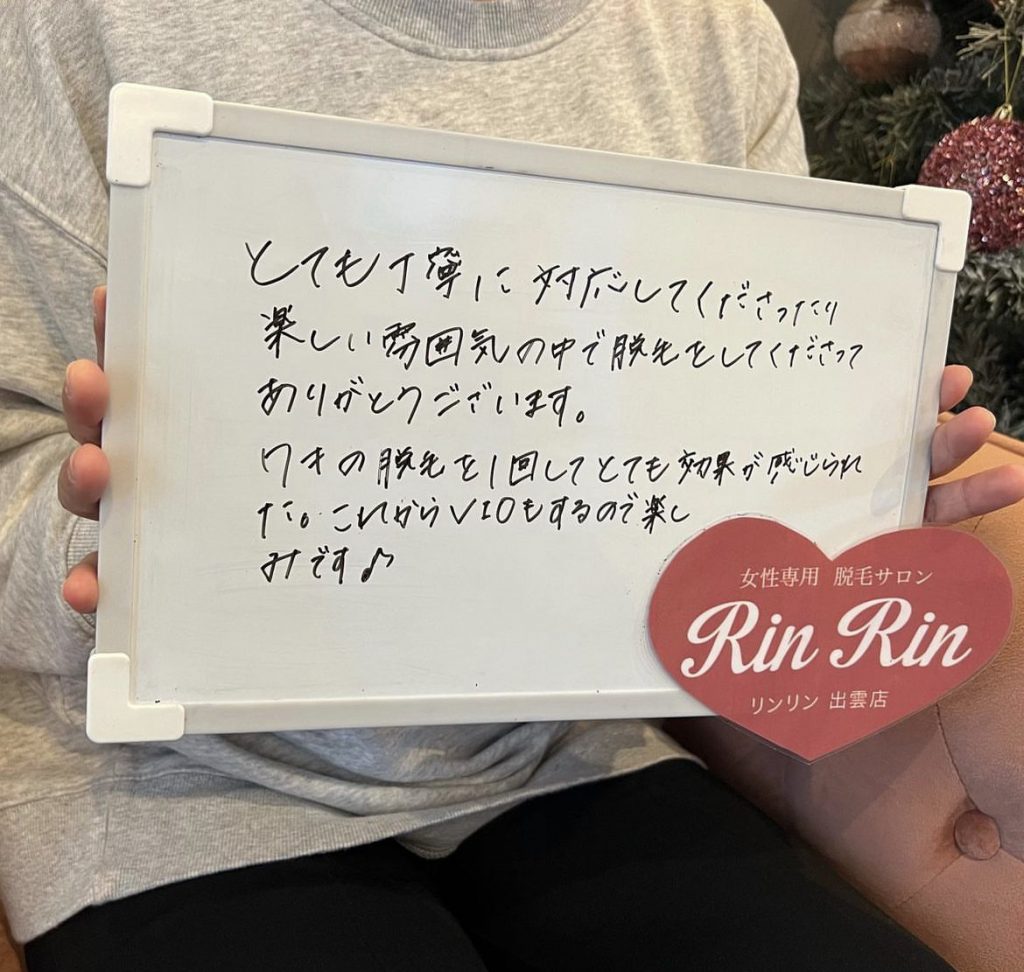 とても丁寧に対応してくださったり
楽しい雰囲気の中で脱毛をしてくださって
ありがとうございます。
ワキの脱毛を1回してとても効果が感じられ
た。これからVIOもするので楽し
みです♪
女性専用 脱毛サロン
Rin Rin
リンリン 出雲店